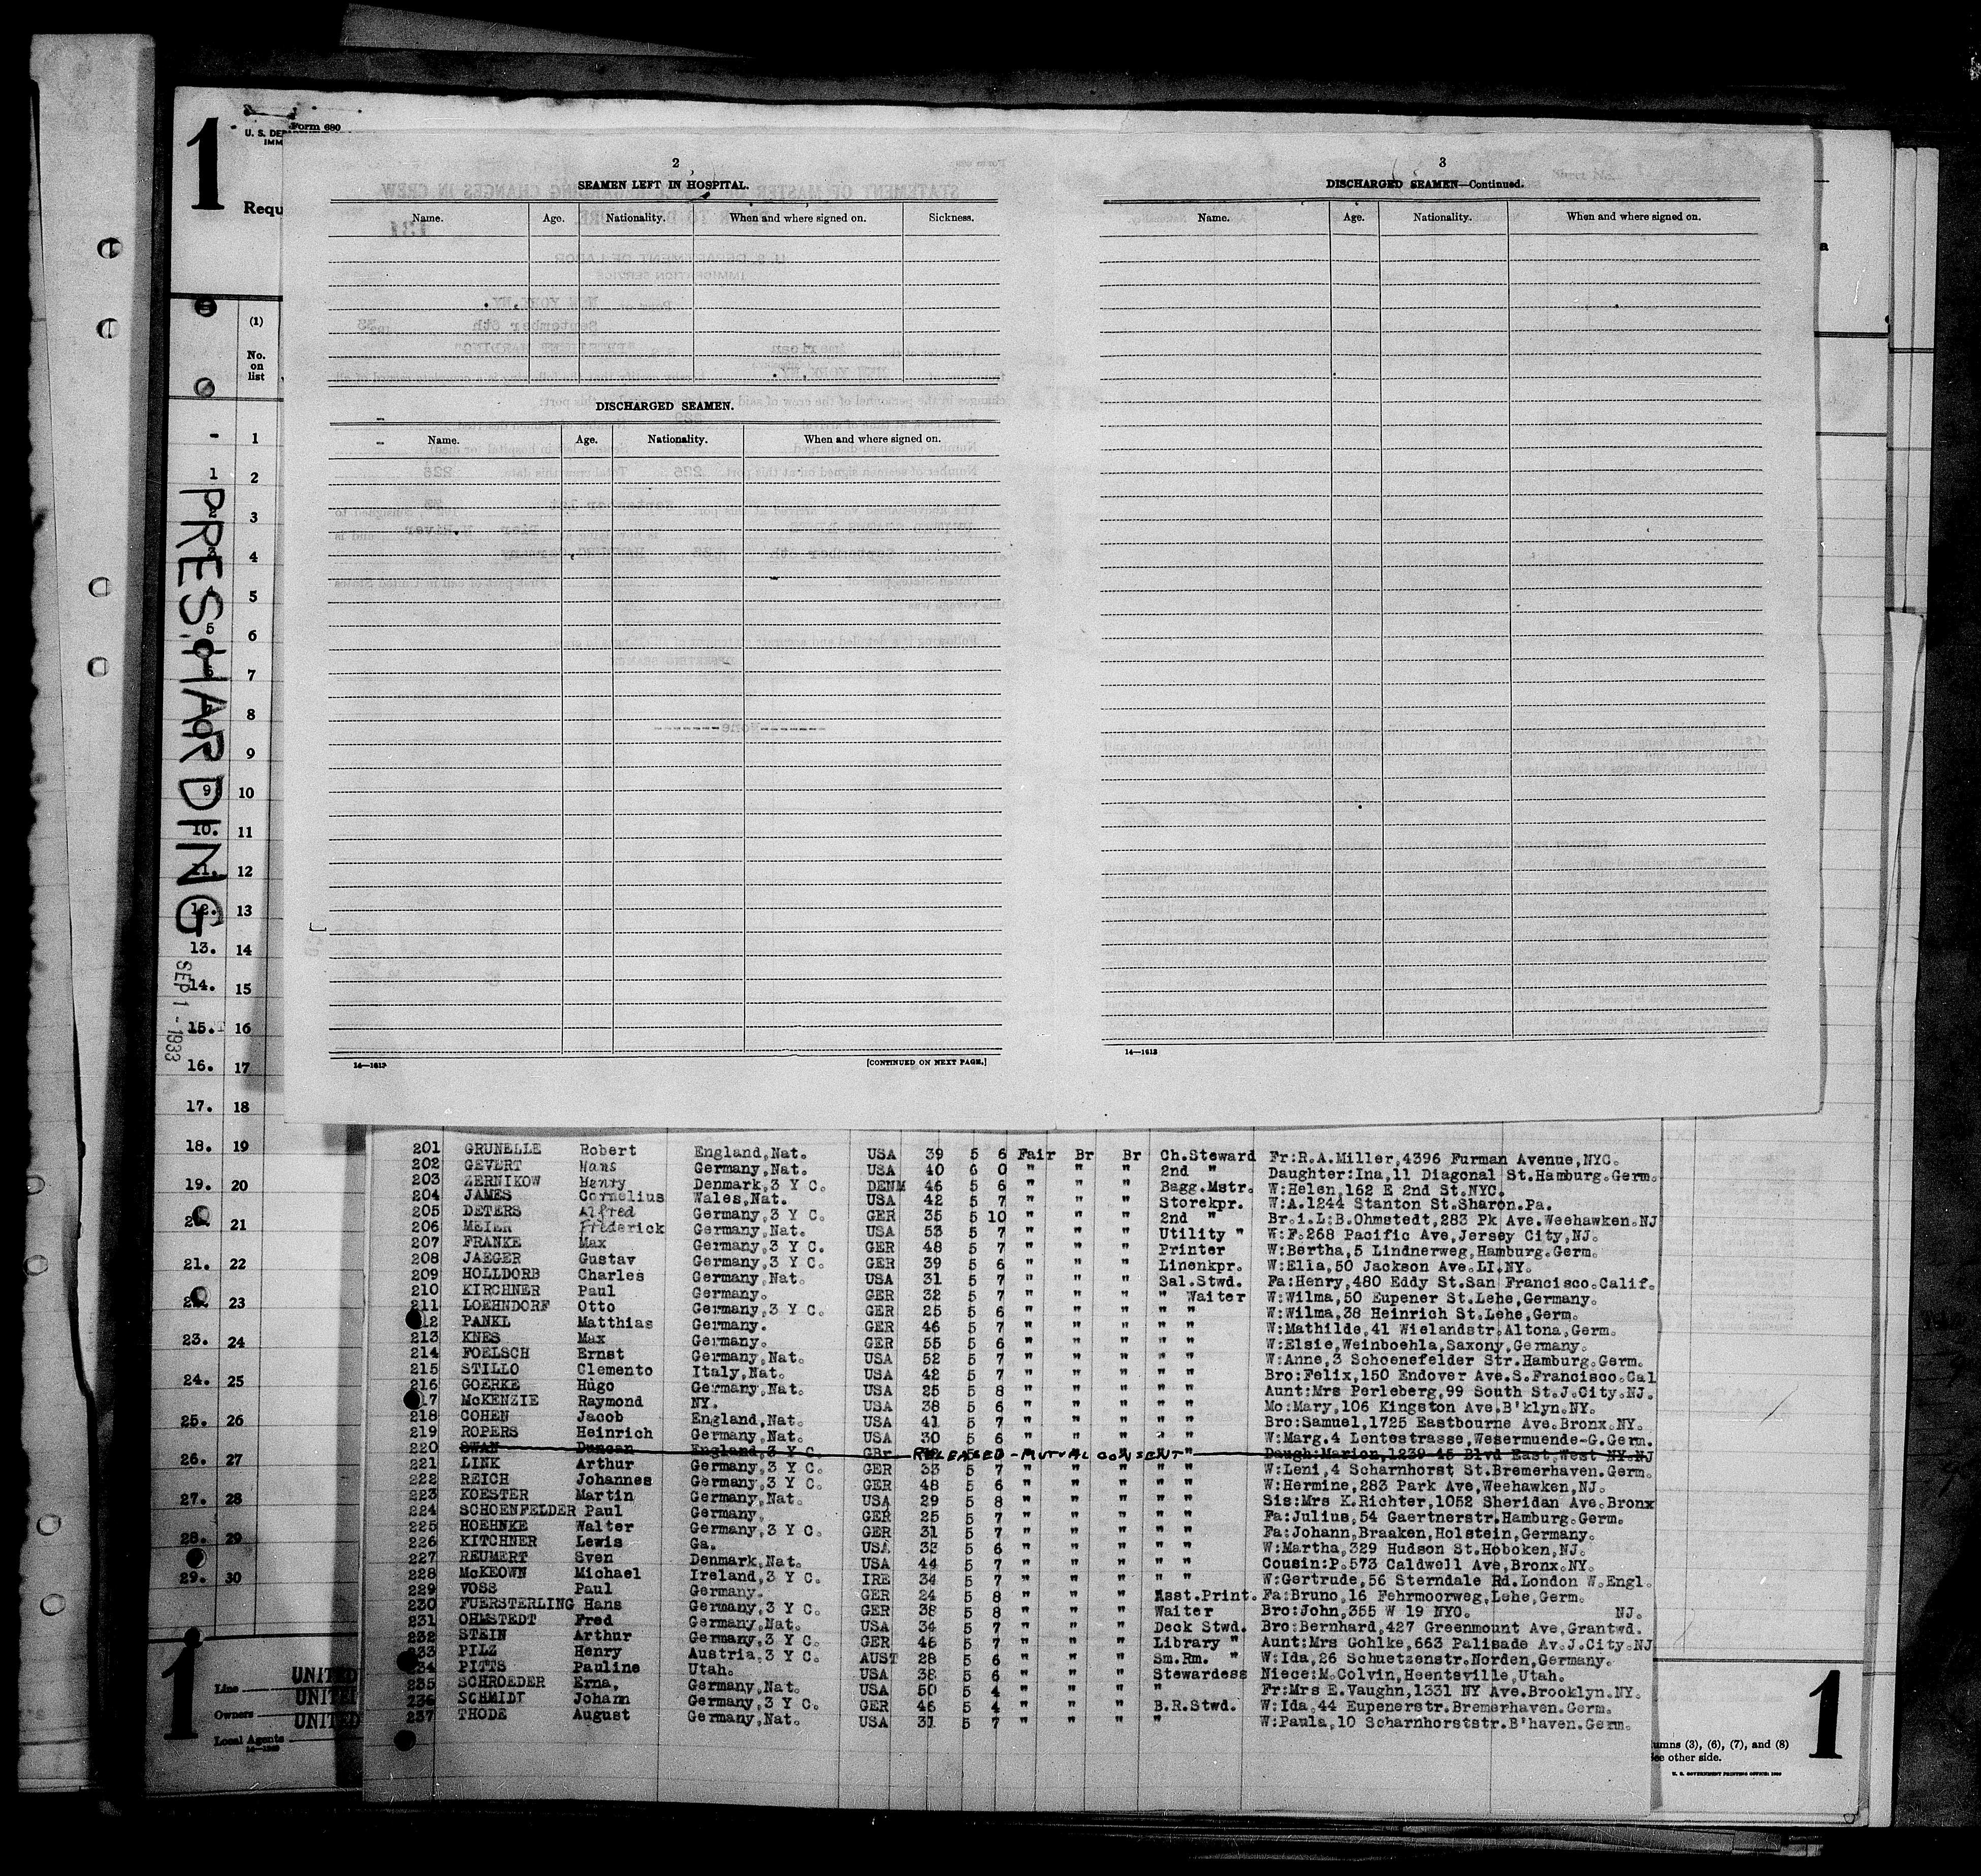 1
Form 680
U. S. DE
IMM
Requ
(1)
No.
on
list
PRES. HARDING
SEP 1 - 1933
2
SEAMEN LEFT IN HOSPITAL.
Name. Age. Nationality. When and where signed on. Sickness.
DISCHARGED SEAMEN.
Name. Age. Nationality. When and where signed on.
14—1613
[CONTINUED ON NEXT PAGE.]
3
DISCHARGED SEAMEN—Continued.
Name. Age. Nationality. When and where signed on.
14—1613
1
1 2
2 3
3 4
4 5
5 6
6 7
8
9
9 10
10. 11
11. 12
12. 13
13. 14
14. 15
15. 16
16. 17
17. 18
18. 19
19. 20
21
21. 22
23
23. 24
24. 25
25. 26
26. 27
27. 28
28. 29
29. 30
201 GRUNELLE Robert England,Nat. USA 39 5 6 Fair Br Br Ch.Steward Fr:R.A.Miller,4396 Furman Avenue,NYC.
202 GEVERT Hans Germany,Nat. USA 40 6 0 " " " 2nd " Daughter:Ina,11 Diagonal St.Hamburg.Germ.
203 ZERNIKOW Henry Denmark,3 Y C. DENM 46 5 6 " " " Bagg.Mstr. W:Helen,162 E 2nd St.NYC.
204 JAMES Cornelius Wales,Nat. USA 42 5 7 " " " Storekpr. W:A.1244 Stanton St.Sharon.Pa.
205 DETERS Alfred Germany,3 Y C. GER 35 5 10 " " " 2nd " Br.i.L:B.Ohmstedt,283 Pk Ave.Weehawken.NJ
206 MEIER Frederick Germany,Nat. USA 53 5 7 " " " Utility " W:F.268 Pacific Ave,Jersey City,NJ.
207 FRANKE Max Germany,3 Y C. GER 48 5 7 " " " Printer W:Bertha,5 Lindnerweg,Hamburg.Germ.
208 JAEGER Gustav Germany,3 Y C. GER 39 5 6 " " " Linenkpr. W:Ella,50 Jackson Ave.LI.NY.
209 HOLLDORB Charles Germany,Nat. USA 31 5 7 " " " Sal.Stwd. Fa:Henry,480 Eddy St.San Francisco.Calif.
210 KIRCHNER Paul Germany. GER 32 5 7 " " " " Waiter W:Wilma,50 Eupener St.Lehe,Germany.
211 LOEHNDORF Otto Germany,3 Y C. GER 25 5 6 " " " " " W:Wilma,38 Heinrich St.Lehe,Germ.
12 PANKL Matthias Germany. GER 46 5 7 " " " " " W:Mathilde,41 Wielandstr.Altona,Germ.
213 KNES Max Germany. GER 55 5 6 " " " " " W:Elsie,Weinboehla,Saxony,Germany.
214 FOELSCH Ernst Germany,Nat. USA 52 5 7 " " " " " W:Anne,3 Schoenefelder Str.Hamburg.Germ.
215 STILLO Clemento Italy,Nat. USA 42 5 7 " " " " " Bro:Felix,150 Endover Ave.S.Francisco.Cal
216 GOERKE Hugo Germany,Nat. USA 25 5 8 " " " " " Aunt:Mrs Perleberg,99 South St.J.City.NJ.
17 McKENZIE Raymond NY. USA 38 5 6 " " " " " Mo:Mary,106 Kingston Ave.B'klyn.NY.
218 COHEN Jacob England,Nat. USA 41 5 7 " " " " " Bro:Samuel,1725 Eastbourne Ave.Bronx.NY.
219 ROPERS Heinrich Germany,Nat. USA 30 5 6 " " " " " W:Marg.4 Lentestrasse,Wesermuende-G.Germ.
220 SWAN Duncan England,3 Y C. GBr RELEASED - MUTUAL CONSENT " Daugh:Marion,1239 45 Blvd East,West NY.NJ
221 LINK Arthur Germany,3 Y C. GER 33 5 7 " " " " " W:Leni,4 Scharnhorst St.Bremerhaven.Germ.
222 REICH Johannes Germany,3 Y C. GER 48 5 6 " " " " " W:Hermine,283 Park Ave,Weehawken,NJ.
223 KOESTER Martin Germany,Nat. USA 29 5 8 " " " " " Sis:Mrs K.Richter,1052 Sheridan Ave.Bronx
224 SCHOENFELDER Paul Germany. GER 25 5 7 " " " " " Fa:Julius,54 Gaertnerstr.Hamburg.Germ.
225 HOEHNKE Walter Germany,3 Y C. GER 31 5 7 " " " " " Fa:Johann,Braaken,Holstein,Germany.
226 KITCHNER Lewis Ga. USA 33 5 6 " " " " " W:Martha,329 Hudson St.Hoboken,NJ.
227 REUMERT Sven Denmark,Nat. USA 44 5 7 " " " " " Cousin:P.573 Caldwell Ave,Bronx.NY.
228 McKEOWN Michael Ireland,3 Y C. IRE 34 5 7 " " " " " W:Gertrude,56 Sterndale Rd.London W.Engl.
229 VOSS Paul Germany. GER 24 5 8 " " " Asst.Print. Fa:Bruno,16 Fehrmoorweg,Lehe,Germ.
230 FUERSTERLING Hans Germany,3 Y C. GER 38 5 8 " " " Waiter Bro:John,355 W 19 NYC. NJ.
231 OHMSTEDT Fred Germany,Nat. USA 34 5 7 " " " Deck Stwd. Bro:Bernhard,427 Greenmount Ave,Grantwd.
232 STEIN Arthur Germany,3 Y C. GER 46 5 7 " " " Library " Aunt:Mrs Gohlke,663 Palisade Av.J.City.NJ
233 PILZ Henry Austria,3 Y C. AUST 28 5 6 " " " Sm.Rm. " W:Ida,26 Schuetzenstr.Norden,Germany.
234 PITTS Pauline Utah. USA 38 5 6 " " " Stewardess Niece:M.Colvin,Heentsville,Utah.
235 SCHROEDER Erna, Germany,Nat. USA 50 5 4 " " " " Fr:Mrs E.Vaughn,1331 NY Ave.Brooklyn.NY.
236 SCHMIDT Johann Germany,3 Y C. GER 46 5 4 " " " B.R.Stwd. W:Ida,44 Eupenerstr.Bremerhaven.Germ.
237 THODE August Germany,Nat. USA 31 5 7 " " " " W:Paula,10 Scharnhorststr.B'haven.Germ.
1
Line
Owners
Local Agents
UNITED
UNITED
UNITED
umns (3), (6), (7), and (8)
See other side.
U. S. GOVERNMENT PRINTING OFFICE: 1930
1